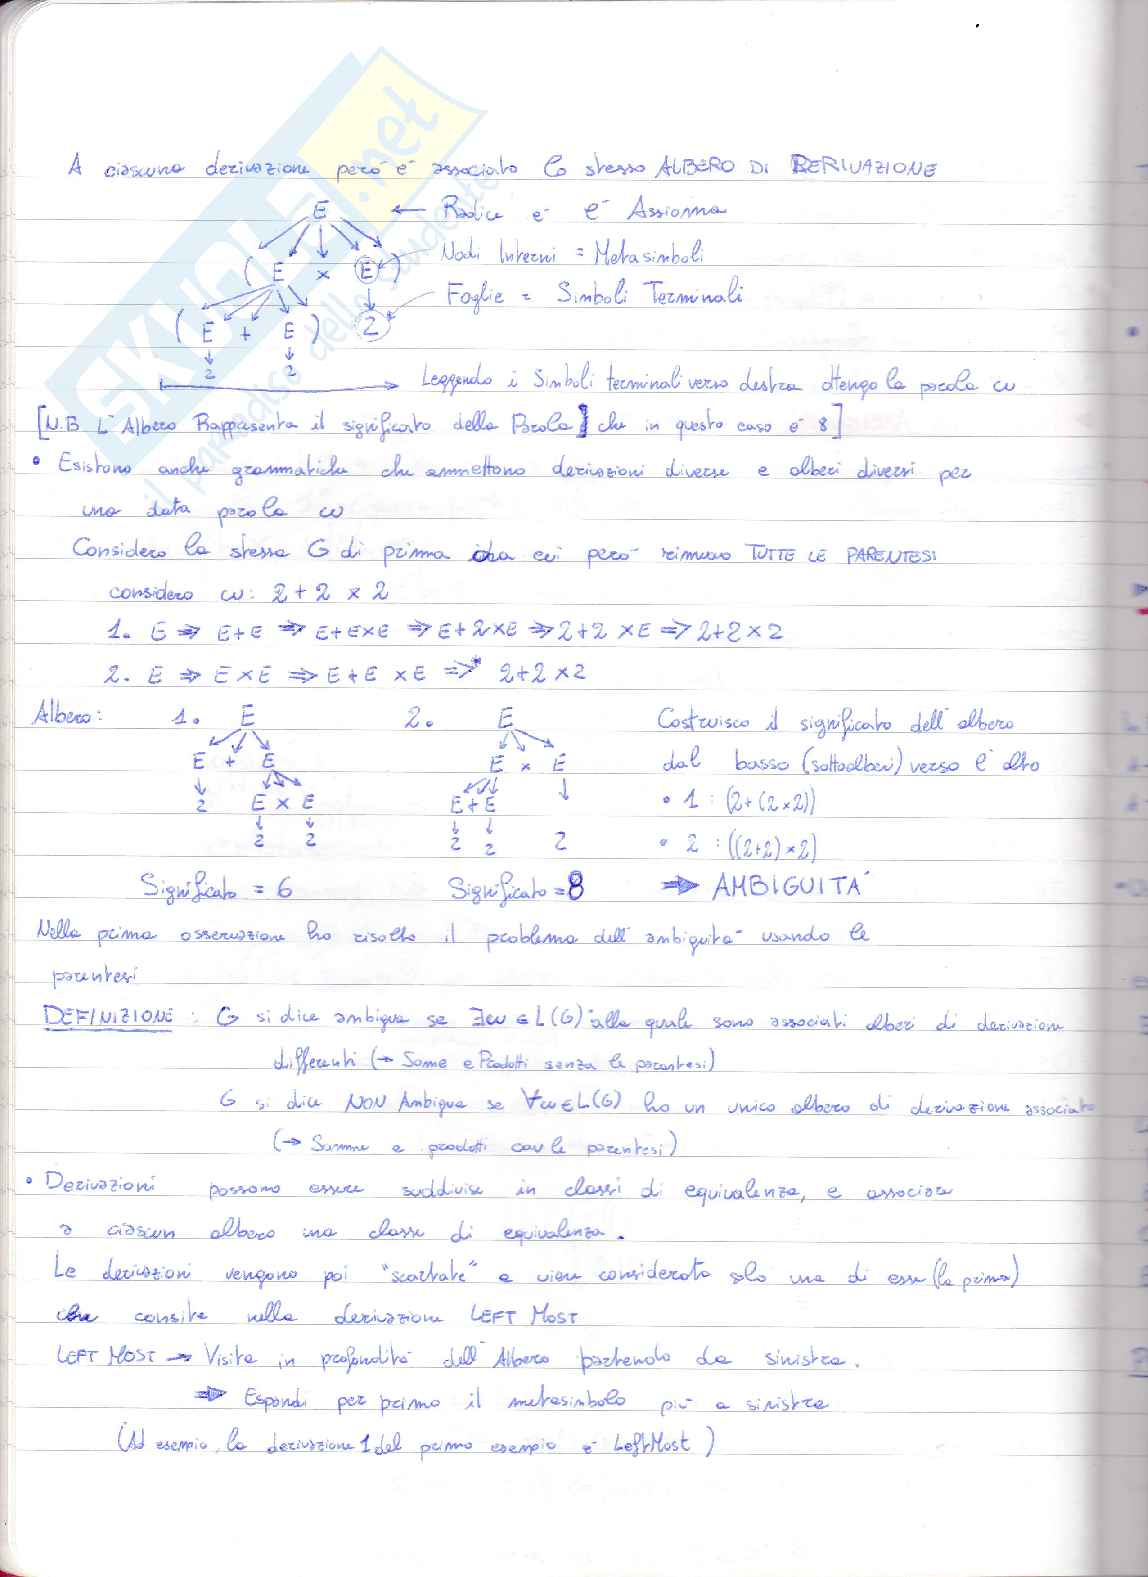 SKUOLA.net
il paradiso dello studente
A ciascuna derivazione però è associato lo stesso ALBERO DI DERIVAZIONE
E ← Radice è è Assioma
( E × E ) Nodi Interni = Metasimboli
( E + E ) 2 Foglie = Simboli Terminali
2 2
Leggendo i Simboli terminali verso destra ottengo la parola w
[N.B L'Albero Rappresenta il significato della Parola] che in questo caso è 8]
• Esistono anche grammatiche che ammettono derivazioni diverse e alberi diversi per
una data parola w
Considero la stessa G di prima a cui però rimuovo TUTTE LE PARENTESI
considero w: 2 + 2 × 2
1. E ⇒ E+E ⇒ E+E×E ⇒ E+2×E ⇒ 2+2 ×E ⇒ 2+2×2
2. E ⇒ E×E ⇒ E+E ×E ⇒* 2+2×2
Albero: 1. E 2. E Costruisco il significato dell'albero
E + E E × E dal basso (sottoalberi) verso l'alto
2 E × E E+E • 1 : (2+(2×2))
2 2 2 2 2 • 2 : ((2+2)×2)
Significato = 6 Significato = 8 ⇒ AMBIGUITÀ
Nella prima osservazione ho risolto il problema dell'ambiguità usando le
parentesi
DEFINIZIONE : G si dice ambigua se ∃w∈L(G) alla quale sono associati alberi di derivazione
differenti (→ Somme e Prodotti senza le parentesi)
G si dice NON Ambigua se ∀w∈L(G) ho un unico albero di derivazione associato
(→ Somme e prodotti con le parentesi)
• Derivazioni possono essere suddivise in classi di equivalenza, e associare
a ciascun albero una classe di equivalenza.
Le derivazioni vengono poi "scartate" e viene considerata solo una di esse (la prima)
che consite nella derivazione LEFT MOST
LEFT MOST → Visita in profondità dell'Albero partendo da sinistra.
⇒ Espandi per primo il metasimbolo più a sinistra
(Ad esempio, la derivazione 1 del primo esempio è LeftMost)